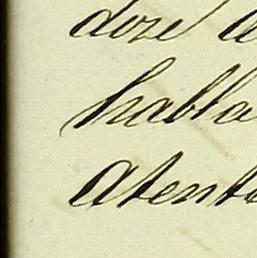 doze a
halla
Atent